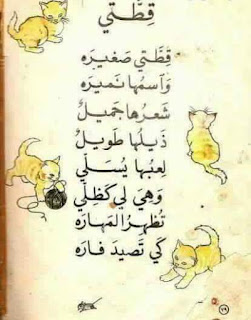 قِطَّتي
قِطَّتي صَغيرَه
وَاسمُها نَميرَه
شَعرُها جَميلٌ
ذَيلُها طَويلٌ
لِعبُها يُسَلّي
وَهِيَ لي كَظِلّي
تُظهِرُ المَهارَه
كَي تَصيدَ فارَه
٧٩